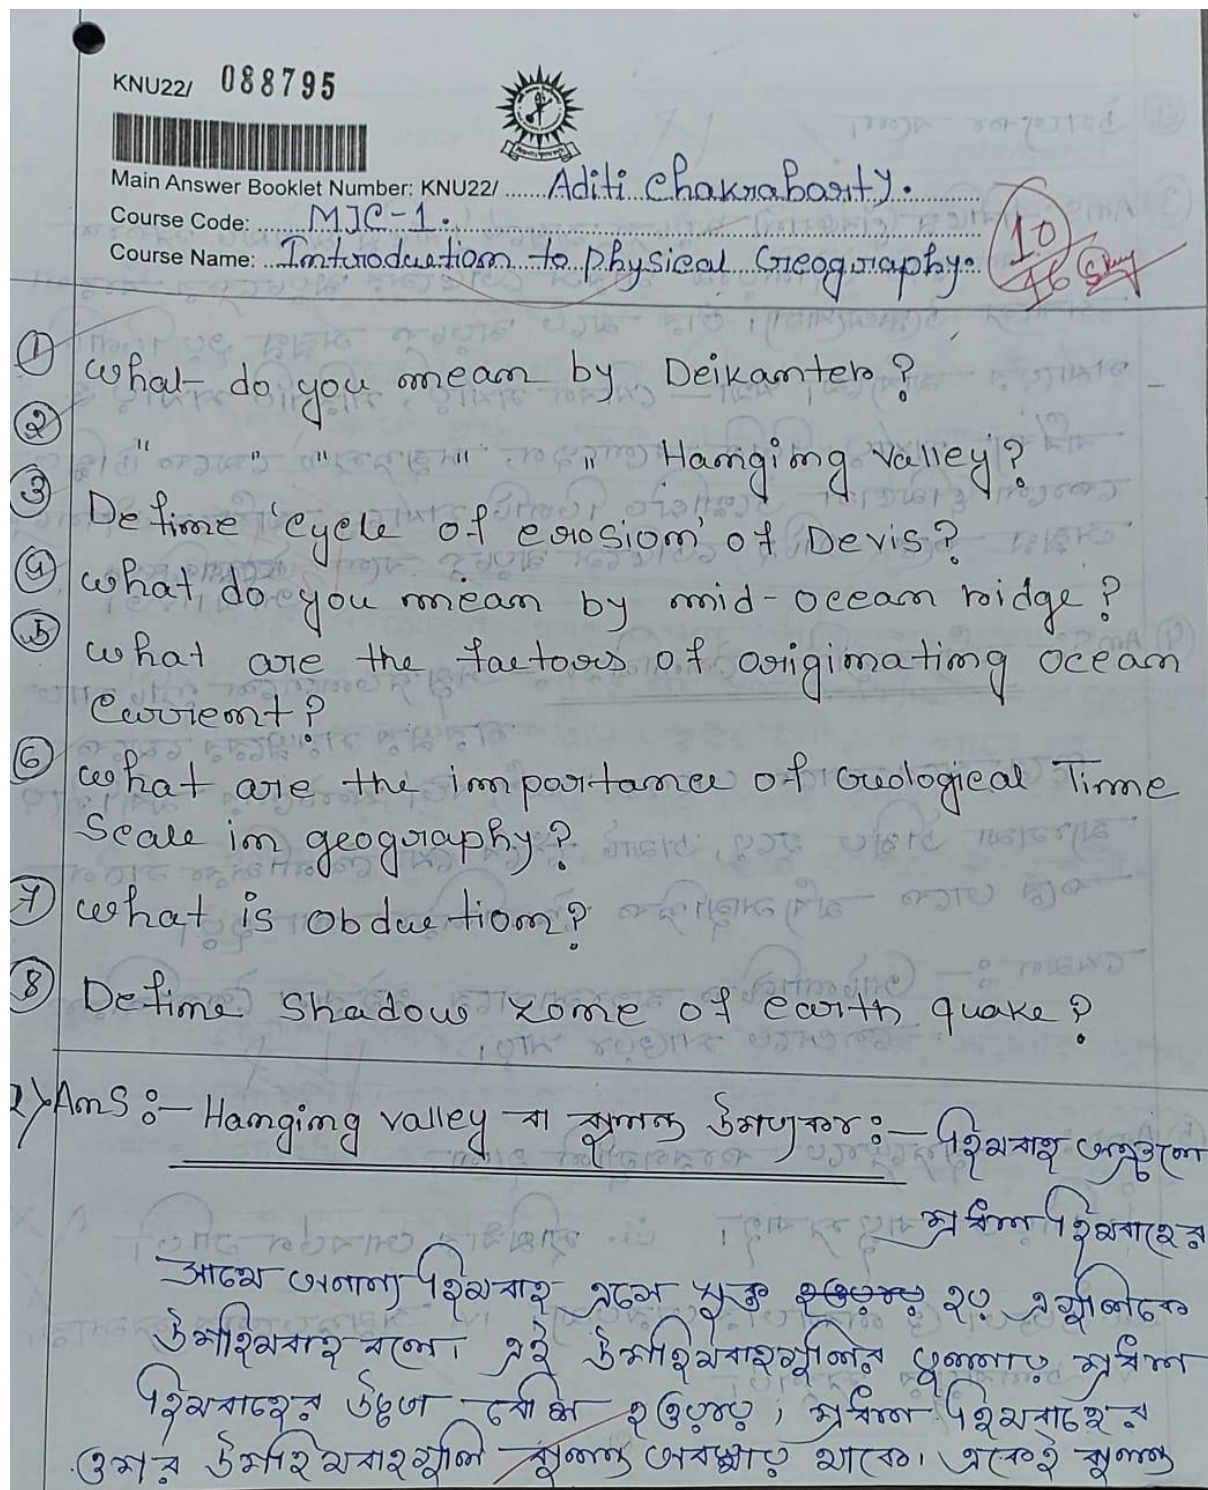 KNU22/ 088795
Main Answer Booklet Number: KNU22/ ...... Aditi Chakraborty.
Course Code: ...... MJC-1.
Course Name: .. Introduction to physical Geography.
10
16
① What do you mean by Deikanter?
② " " " " Hanging valley?
③ Define 'cycle of erosion' of Devis?
④ What do you mean by mid-ocean ridge?
⑤ What are the factors of originating ocean
current?
⑥ What are the importance of Geological Time
Scale in geography?
⑦ What is obduction?
⑧ Define Shadow zone of earth quake?
2) Ans :- Hanging valley বা ঝুলন্ত উপত্যকা :- হিমবাহ অঞ্চলে
প্রধান হিমবাহের
সাথে অনান্য হিমবাহ এসে যুক্ত হয় এগুলিকে
উপহিমবাহ বলে। এই উপহিমবাহগুলির তুলনায় প্রধান
হিমবাহের উচ্চতা বেশি হওয়ায়, প্রধান হিমবাহের
ওপর উপহিমবাহগুলি ঝুলন্ত অবস্থায় থাকে। একেই ঝুলন্ত